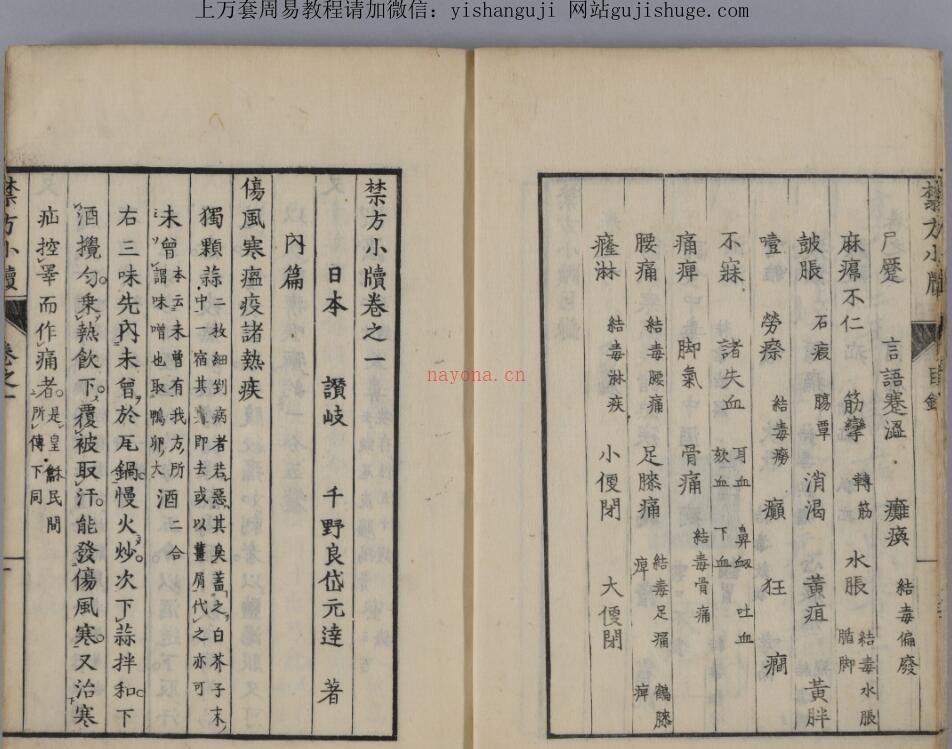 上万套周易教程请加微信：yishanguji 网站gujishuge.com
尸蹷 言語蹇澀 癱瘓 結毒偏廢
麻瘪不仁 筋攣 轉筋 水脹 結毒水脹 脂脚
皷脹 石瘕 腸蕈 消渴 黃疸 黃胖
噎 勞瘵 結毒癆 癲 狂 癇
不寐 諸失血 耳血 鼻衂 吐血 欬血 下血
痛痺 脚氣 骨痛 結毒骨痛
腰痛 結毒腰痛 足膝痛 結毒足痛 鶴膝 痺 痺
癃淋 結毒淋疾 小便閉 大便閉
禁方小牘
目錄
禁方小牘卷之一
日本 讚岐 千野良岱元達 著
內篇
傷風寒瘟疫諸熱疾
獨顆蒜二枚細剉病者若惡其臭葢之白芥子末中一宿其臭即去或以薑屑代之亦可
未曾本云未曾有我方所謂味噌也取鴨卵大酒二合
右三味先內未曾於瓦鍋慢火炒次下蒜拌和下
酒攪勻乗熱飲下覆被取汗能發傷風寒又治寒
疝控睾而作痛者是皇龢民間所傳下同
禁方小牘
卷之一
nayona.cn